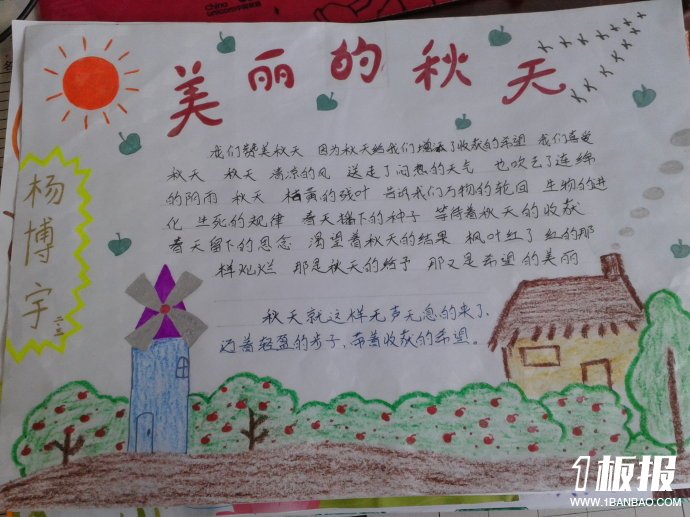 China
unicom中国联通
美丽的秋天
我们赞美秋天 因为秋天给我们增添了收获的希望 我们喜爱
秋天 秋天 清凉的风 送走了闷热的天气 也吹去了连绵
的阴雨 秋天 枯黄的残叶 告诉我们万物的轮回 生物的进
化 生死的规律 春天播下的种子 等待着秋天的收获
春天留下的思念 渴望着秋天的结果 枫叶红了 红的那
样灿烂 那是秋天的给予 那又是希望的美丽
秋天就这样无声无息的来了,
迈着轻盈的步子,带着收获的希望。
杨博宇
二.三
1板报
WWW.1BANBAO.COM